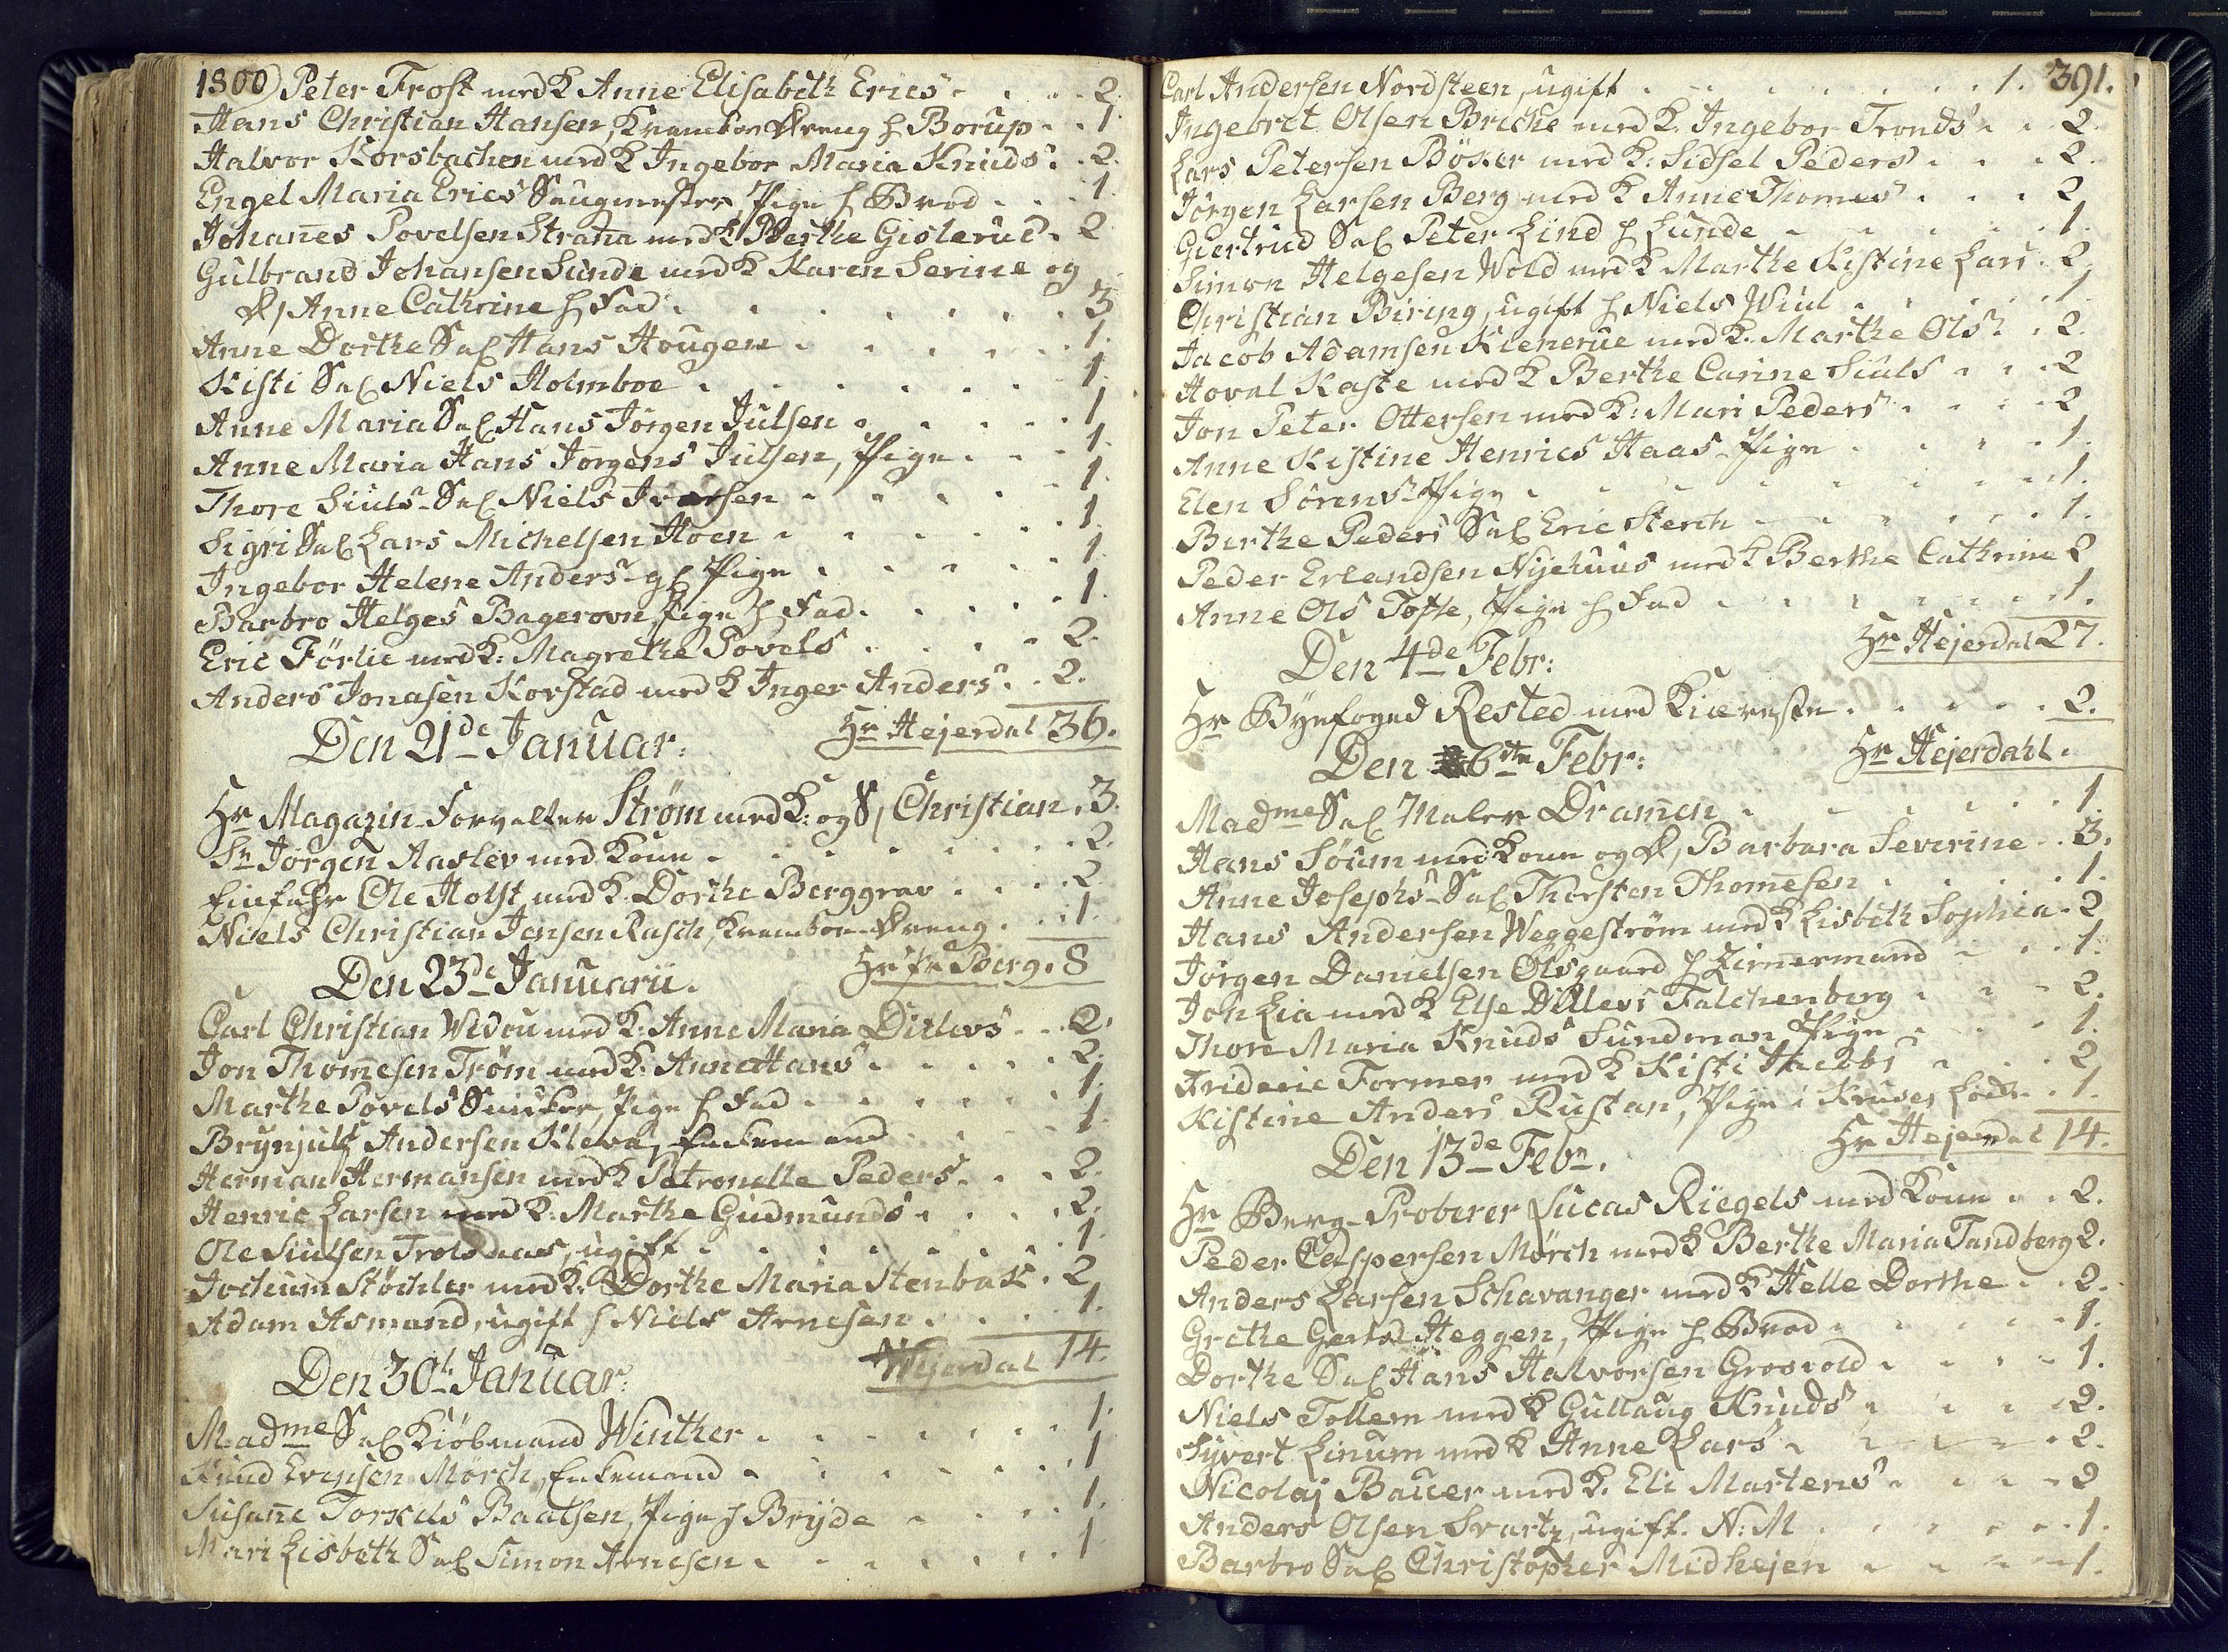 1800) Peter Frost med K Anne Elisabeth Erics . . . 2.
Hans Christian Hansen, Kramboe Dreng h Borup . . 1.
Halvor Korsbachen med K Ingebor Maria Knuds . . 2.
Engel Maria Erics Saugmester Pige h Brod . . . 1.
Johañes Povelsen Straña med K Berthe Gislerud . 2
Gulbrand Johansen Sunde med K Karen Serine og
D, Anne Cathrine h Fad . . . . . . . 3
Anne Dorthe Sal Hans Hougen . . . . . 1.
Kisti Sal Niels Holmboe . . . . . . 1.
Anne Maria Sal Hans Jörgen Julsen . . . . 1
Anne Maria Hans Jörgens Julsen, Pige . . . 1.
Thore Siuls Sal Niels Iversen . . . . . 1.
Sigri Sal Lars Michelsen Hoen . . . . . 1
Ingebor Helene Anders gl Pige . . . . . 1.
Barbro Helges Bagerovn, Pige h Fad . . . . 1.
Eric Förlie med K: Magrethe Povels . . . . 2.
Anders Jonasen Korstad med K Inger Anders . . 2.
Hr Hejerdal 36.
Den 21de Januar:
Hr Magazin-Forvalter Ström med K: og S, Christian . 3.
Sr Jörgen Aaslev med Kone . . . . . . 2.
Ole Holst med K. Dorthe Berggrav . . . . 2
Niels Christian Jensen Rasch, Kramboe-Dreng . . . 1.
Hr Berg. 8
Den 23de Januarii.
Carl Christian Widou med K. Anne Maria Ditlevs . . 2.
Jon Thom̄esen Tröm med K. Anne Hans . . . . 2.
Marthe Povels Snicker, Pige h Fad . . . . . 1.
Brynjulf Andersen Kleva, Enkemand . . . . 1.
Herman Hermansen med K Petronelle Peders . . . 2.
Henric Larsen med K. Marthe Gudmunds . . . . 2.
Ole Siulsen ugift . . . . . . . 1.
Jochum Stöchler med K: Dorthe Maria Stenbak . 2
Adam Asmand, ugift h Niels Arnesen . . . . 1.
Hejerdal 14.
Den 30te Januar:
Madme Sal Kiöbmand Winther . . . . . . 1.
Knud Evensen Mörch, Enkemand . . . . . . 1
Susañe Torkels Baatsen, Pige h Brÿde . . . . 1.
Mari Lisbeth Sal Simon Arnesen . . . . . . 1
391.
Carl Andersen Nordsteen, ugift . . . . . . . 1.
Ingebret Olsen Briche med K. Ingebor Tronds . . 2.
Lars Petersen Böker med K: Sidsel Peders . . . 2.
Jörgen Larsen Berg med K Anne Thomes . . . 2
Giertrud Sal Peter Lind h Lunde . . . . . 1.
Simon Helgesen Wold med K Marthe Kistine Lars . 2
Christian Biring, ugift h Niels Wiul . . . . . 1
Jacob Adamsen Klenerue med K. Marthe Ols . 2.
Hovel Kaste med K Berthe Carine Siuls . . . 2
Jon Peter Ottersen med K: Mari Peders . . . . 2
Anne Kistine Henrics Haas Pige . . . . 1.
Elen Sörens Pige . . . . . . . . 1.
Berthe Peders Sal Eric Sterch . . . . . . 1.
Peder Erlandsen Nÿehuus med K Berthe Cathrine 2
Anne Ols Tofte, Pige h Fad . . . . . . 1.
Hr Hejerdal 27.
Den 4de Febr:
Hr Bÿefoged Rested med Kiereste . . . . . 2.
Hr Hejerdahl.
Den 6te Febr:
Madme Sal Maler Dram̄en . . . . . . 1.
Hans Söum med Kone og D, Barbara Severine . . 3.
Anne Josephs Sal Thorsten Thom̄esen . . . . 1.
Hans Andersen Weggeström med K Lisbeth Sophia . 2
Jörgen Danielsen Olsgaard h Zim̄ermand . . . 1.
Jon Lia med K Else Ditlevs Falchenberg . . . 2.
Thore Maria Knuds Sundman Pige . . . . 1.
Frideric Former med K Kisti Jacobs . . . . 2
Kistine Anders Rustan, Pige i Kruses . . 1.
Hr Hejerdal 14.
Den 13de Febr.
Hr Berg-Proberer Lucas Riegels med Kone . . 2.
Peder Caspersen Mörch med K Berthe Maria Tandberg 2.
Anders Larsen Schavanger med K Helle Dorthe . . 2.
Grethe Gerts Heggen, Pige h Brod . . . . . 1.
Dorthe Sal Hans Halvorsen Grosvold . . . . 1.
Niels Tollem med K Gullaug Knuds . . . . 2.
Syvert Linum med K Anne Lars . . . . . 2.
Nicolaj Bauer med K. Eli Martens . . . . 2
Anders Olsen Svartz, ugift. N: M . . . . . 1.
Barbro Sal Christopher Midhejen . . . . . 1.